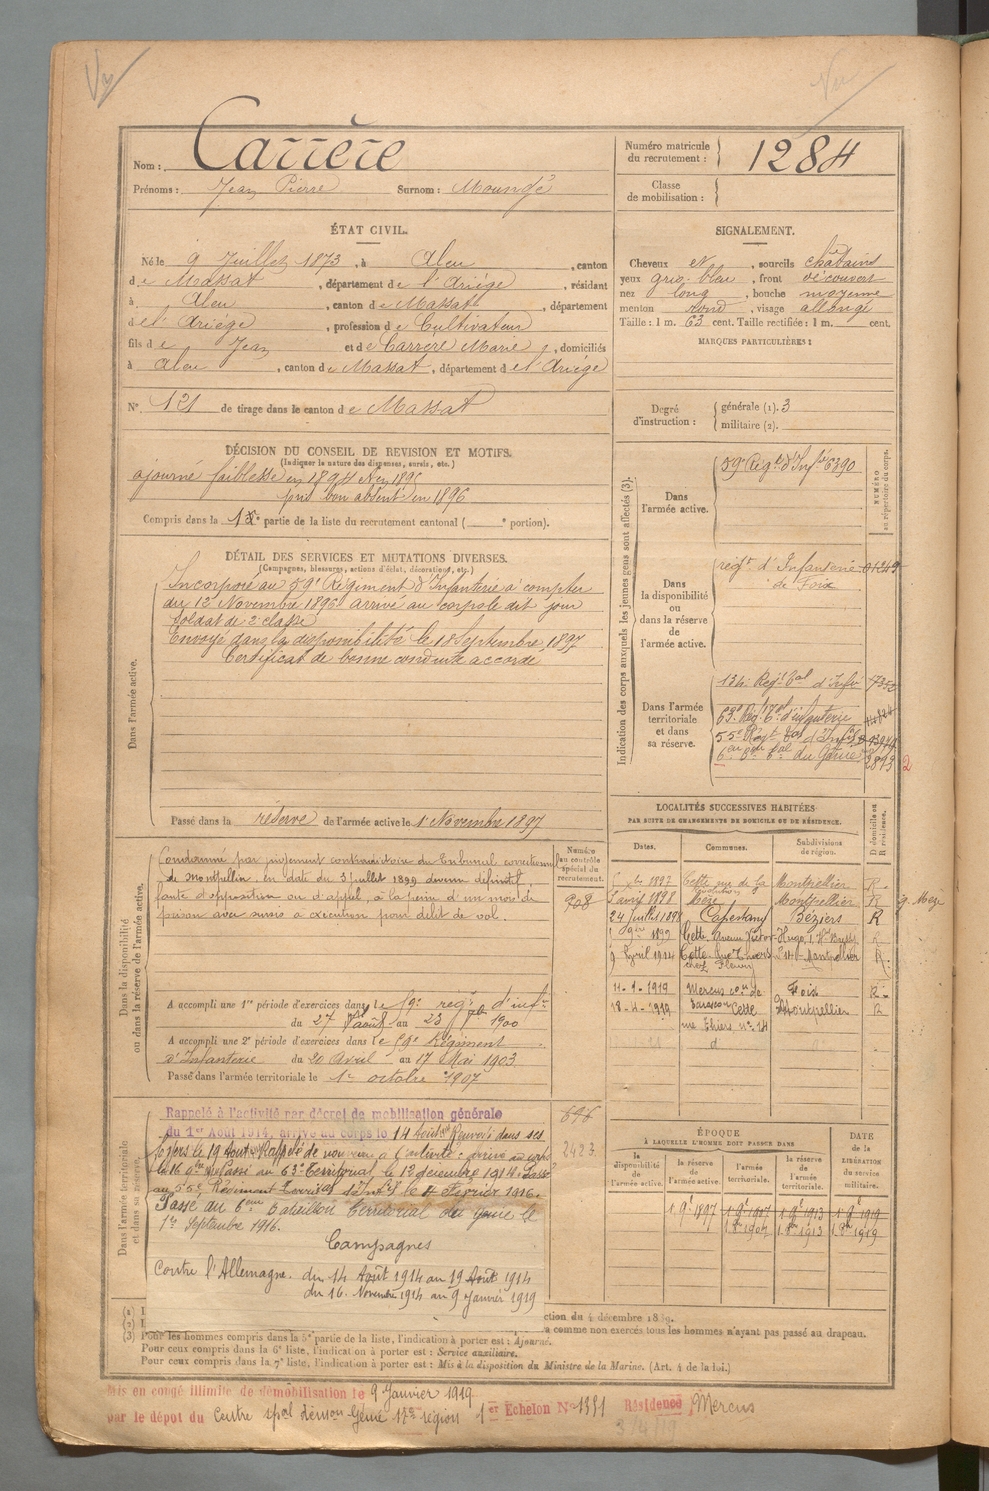 Vu
Vu
Nom : Carrère
Prénoms : Jean Pierre Surnom : Moundé
Numéro matricule du recrutement : 1284
Classe de mobilisation :
ÉTAT CIVIL.
Né le 9 Juillet 1873, à Aleu, canton
de Massat, département de l'Ariège, résidant
à Aleu, canton de Massat, département
de l'Ariège, profession de Cultivateur
fils de Jean et de Carrère Marie, domiciliés
à Aleu, canton de Massat, département de l'Ariège
N° 121 de tirage dans le canton de Massat
SIGNALEMENT.
Cheveux et, sourcils châtains
yeux gris-bleu, front découvert
nez long, bouche moyenne
menton rond, visage allongé
Taille : 1 m. 63 cent. Taille rectifiée : 1 m. cent.
MARQUES PARTICULIÈRES :
Degré d'instruction : générale (1). 3
militaire (2).
DÉCISION DU CONSEIL DE REVISION ET MOTIFS.
(Indiquer la nature des dispenses, sursis, etc.)
ajourné faiblesse en 1894 & en 1895
pris bon absent en 1896
Compris dans la 1e partie de la liste du recrutement cantonal ( portion).
DÉTAIL DES SERVICES ET MUTATIONS DIVERSES.
(Campagnes, blessures, actions d'éclat, décorations, etc.)
Dans l'armée active.
Incorporé au 59e Régiment d'Infanterie à compter
du 12 Novembre 1896 arrivé au corps le dit jour
Soldat de 2e classe
Envoyé dans la disponibilité le 18 Septembre 1897
Certificat de bonne conduite accordé
Passé dans la réserve de l'armée active le 1 Novembre 1897
Indication des corps auxquels les jeunes gens sont affectés (3).
NUMÉRO au répertoire du corps.
Dans l'armée active.
59e Régt d'Infie 6390
Dans la disponibilité ou dans la réserve de l'armée active.
régt d'Infanterie 01249
de Foix
Dans l'armée territoriale et dans sa réserve.
134e Régt tal d'Infie 17352
63e Rég. tal d'infanterie
55e Régt tal d'Infie
6e Bon tal du Génie 2893 2
LOCALITÉS SUCCESSIVES HABITÉES
PAR SUITE DE CHANGEMENTS DE DOMICILE OU DE RÉSIDENCE.
Dates. Communes. Subdivisions de région. D domicile ou R résidence.
1897 Cette rue de la Révolution 9 Montpellier R
5 avril 1898 Mèze Montpellier R g. Mèze
24 Juillet 1898 Capestang Béziers R
9bre 1899 Cette Avenue Victor-Hugo, 1, R
9 Avril 1914 Cette Rue Thiers No 14 Montpellier R
chez Fleury
11-1-1919 Mercus con de Tarascon Foix R
18-4-1919 Cette Montpellier R
rue Thiers n° 14
d
Dans la disponibilité ou dans la réserve de l'armée active.
Numéro au contrôle spécial du recrutement.
908
Condamné par jugement contradictoire du tribunal correctionnel
de Montpellier en date du 3 Juillet 1899 devenu définitif
faute d'opposition ou d'appel, à la peine d'un mois de
prison avec sursis à exécution pour délit de vol.
A accompli une 1re période d'exercices dans le 59e régt d'inf.
du 27 août au 23 7bre 1900
A accompli une 2e période d'exercices dans le 59e Régiment
d'Infanterie du 20 Avril au 17 Mai 1903
Passé dans l'armée territoriale le 1er octobre 1907
Dans l'armée territoriale et dans sa réserve.
696
2423
Rappelé à l'activité par décret de mobilisation générale
du 1er Août 1914, arrivé au corps le 14 Août et Renvoyé dans ses
foyers le 19 Août. Rappelé de nouveau à l'activité : arrivé au corps
le 16 9bre. Passé au 63e Territorial, le 12 décembre 1914. Passé
au 55e Régiment Territal d'Infie le 4 Février 1916.
Passé au 6eme bataillon territorial du génie le
1er Septembre 1916.
Campagnes
Contre l'Allemagne. du 14 Août 1914 au 19 Août 1914
du 16 Novembre 1914 au 9 Janvier 1919
ÉPOQUE
À LAQUELLE L'HOMME DOIT PASSER DANS
la disponibilité de l'armée active. la réserve de l'armée active. l'armée territoriale. la réserve de l'armée territoriale.
DATE DE LA LIBÉRATION du service militaire.
1 9e 1897 1 9e 1907 1 9e 1913 1 9e 1919
1 8e 1907 1 8e 1913 1 8e 1919
(1) I
(2) I
ction du 4 décembre 1889.
a comme non exercés tous les hommes n'ayant pas passé au drapeau.
(3) Pour les hommes compris dans la 5e partie de la liste, l'indication à porter est : Ajourné.
Pour ceux compris dans la 6e liste, l'indication à porter est : Service auxiliaire.
Pour ceux compris dans la 7e liste, l'indication à porter est : Mis à la disposition du Ministre de la Marine. (Art. 4 de la loi.)
Mis en congé illimité de démobilisation le 9 Janvier 1919
par le dépôt du Centre spal démon Génie 17e région 1er Echelon N° 1331 Résidence Mercus
3/4/19